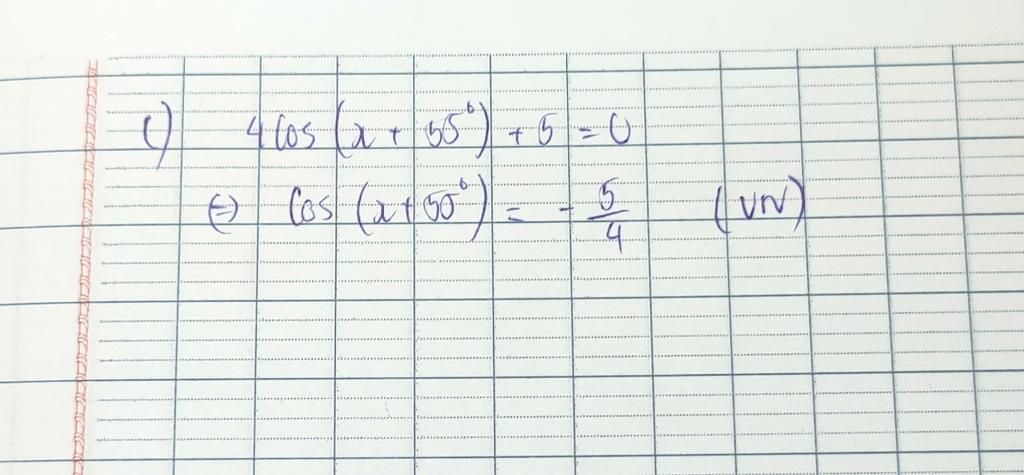 c) 4 cos (x + 55°) + 5 = 0
⇔ cos (x + 50°) = - 5/4 (VN)